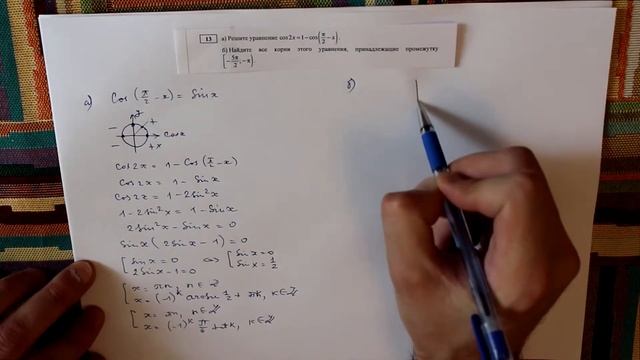 13 а) Решите уравнение cos 2x = 1 − cos(π/2 − x).
б) Найдите все корни этого уравнения, принадлежащие промежутку
[−5π/2; −π).
а) Cos (π/2 − x) = Sin x
y
− +
Cos x
− + x
Cos 2x = 1 − Cos (π/2 − x)
Cos 2x = 1 − Sin x
Cos 2x = 1 − 2Sin²x
1 − 2Sin²x = 1 − Sin x
2Sin²x − Sin x = 0
Sin x (2Sin x − 1) = 0
[ Sin x = 0 ⇔ [ Sin x = 0
2Sin x − 1 = 0 Sin x = 1/2
[ x = πn, n ∈ Z
x = (−1)^k arcsin 1/2 + πk, k ∈ Z
[ x = πn, n ∈ Z
x = (−1)^k π/6 + πk, k ∈ Z
б)